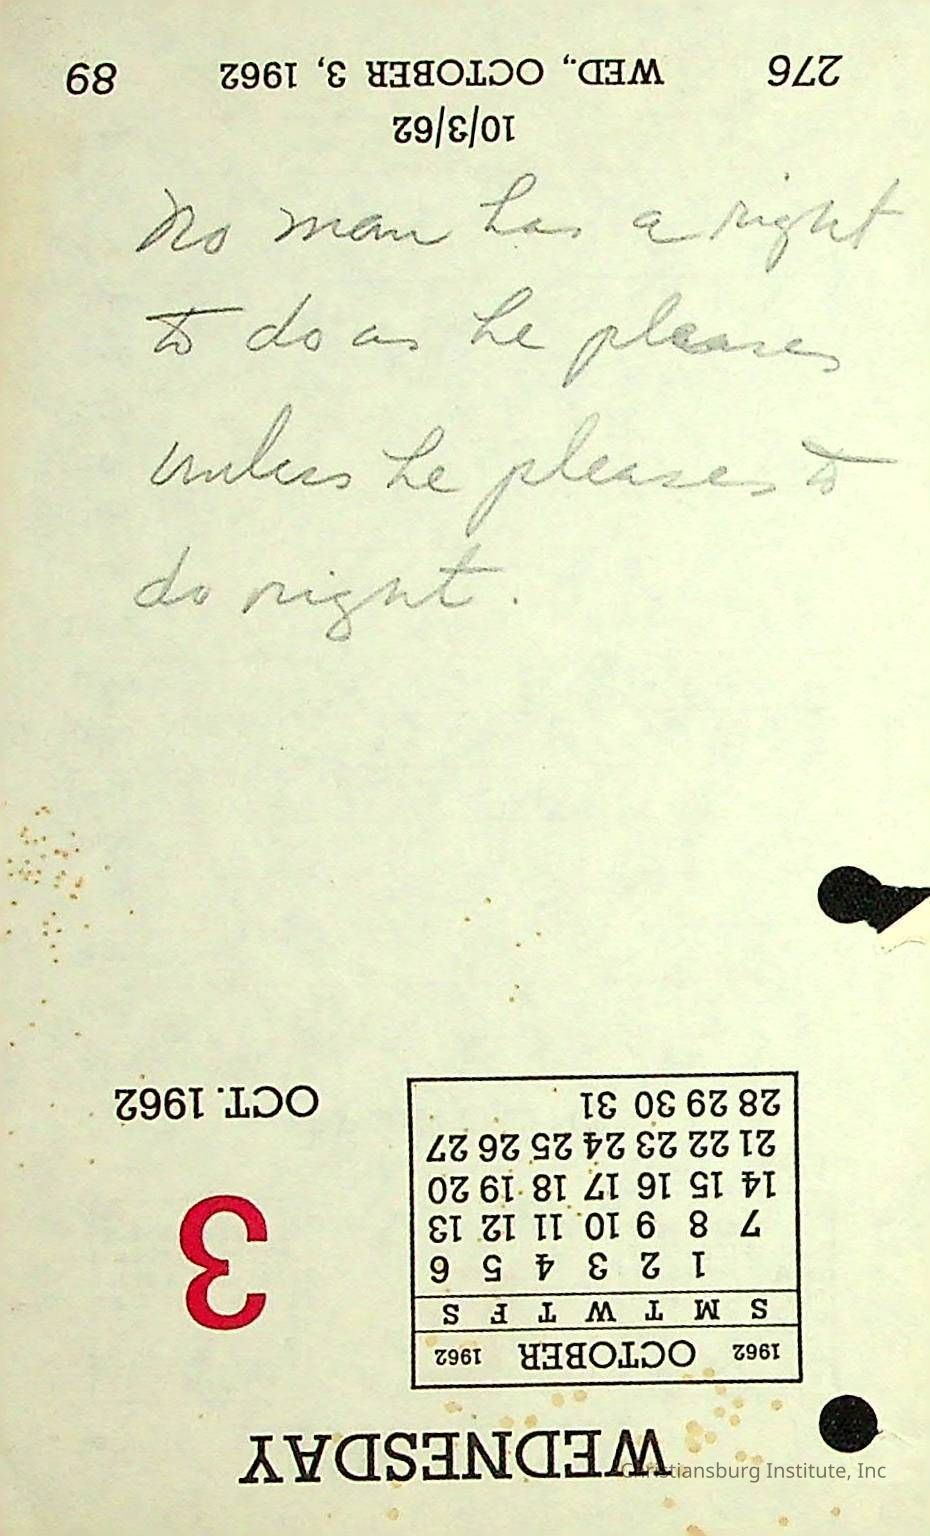 276 WED., OCTOBER 3, 1962 89
10/3/62
No man has a right
to do as he pleases
unless he pleases to
do right.
WEDNESDAY
1962 OCTOBER 1962
S M T W T F S
1 2 3 4 5 6
7 8 9 10 11 12 13
14 15 16 17 18 19 20
21 22 23 24 25 26 27
28 29 30 31
3
OCT. 1962
Christiansburg Institute, Inc